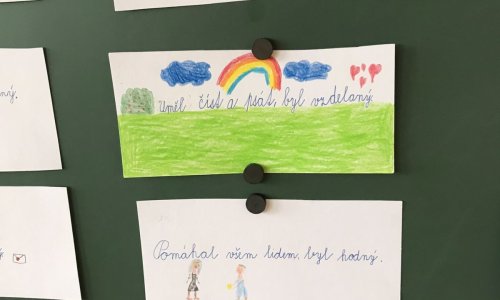 Uměl číst a psát, byl vzdelaný.
Pomáhal všem lidem, byl hodný.